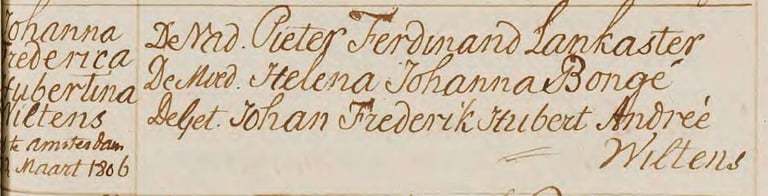 Johanna
Frederica
Hubertina
Wiltens
te amsterdam
Maart 1806
De Vad. Pieter Ferdinand Lankaster
De Moed. Helena Johanna Bongé
De Get. Johan Frederik Hubert Andreé
Wiltens